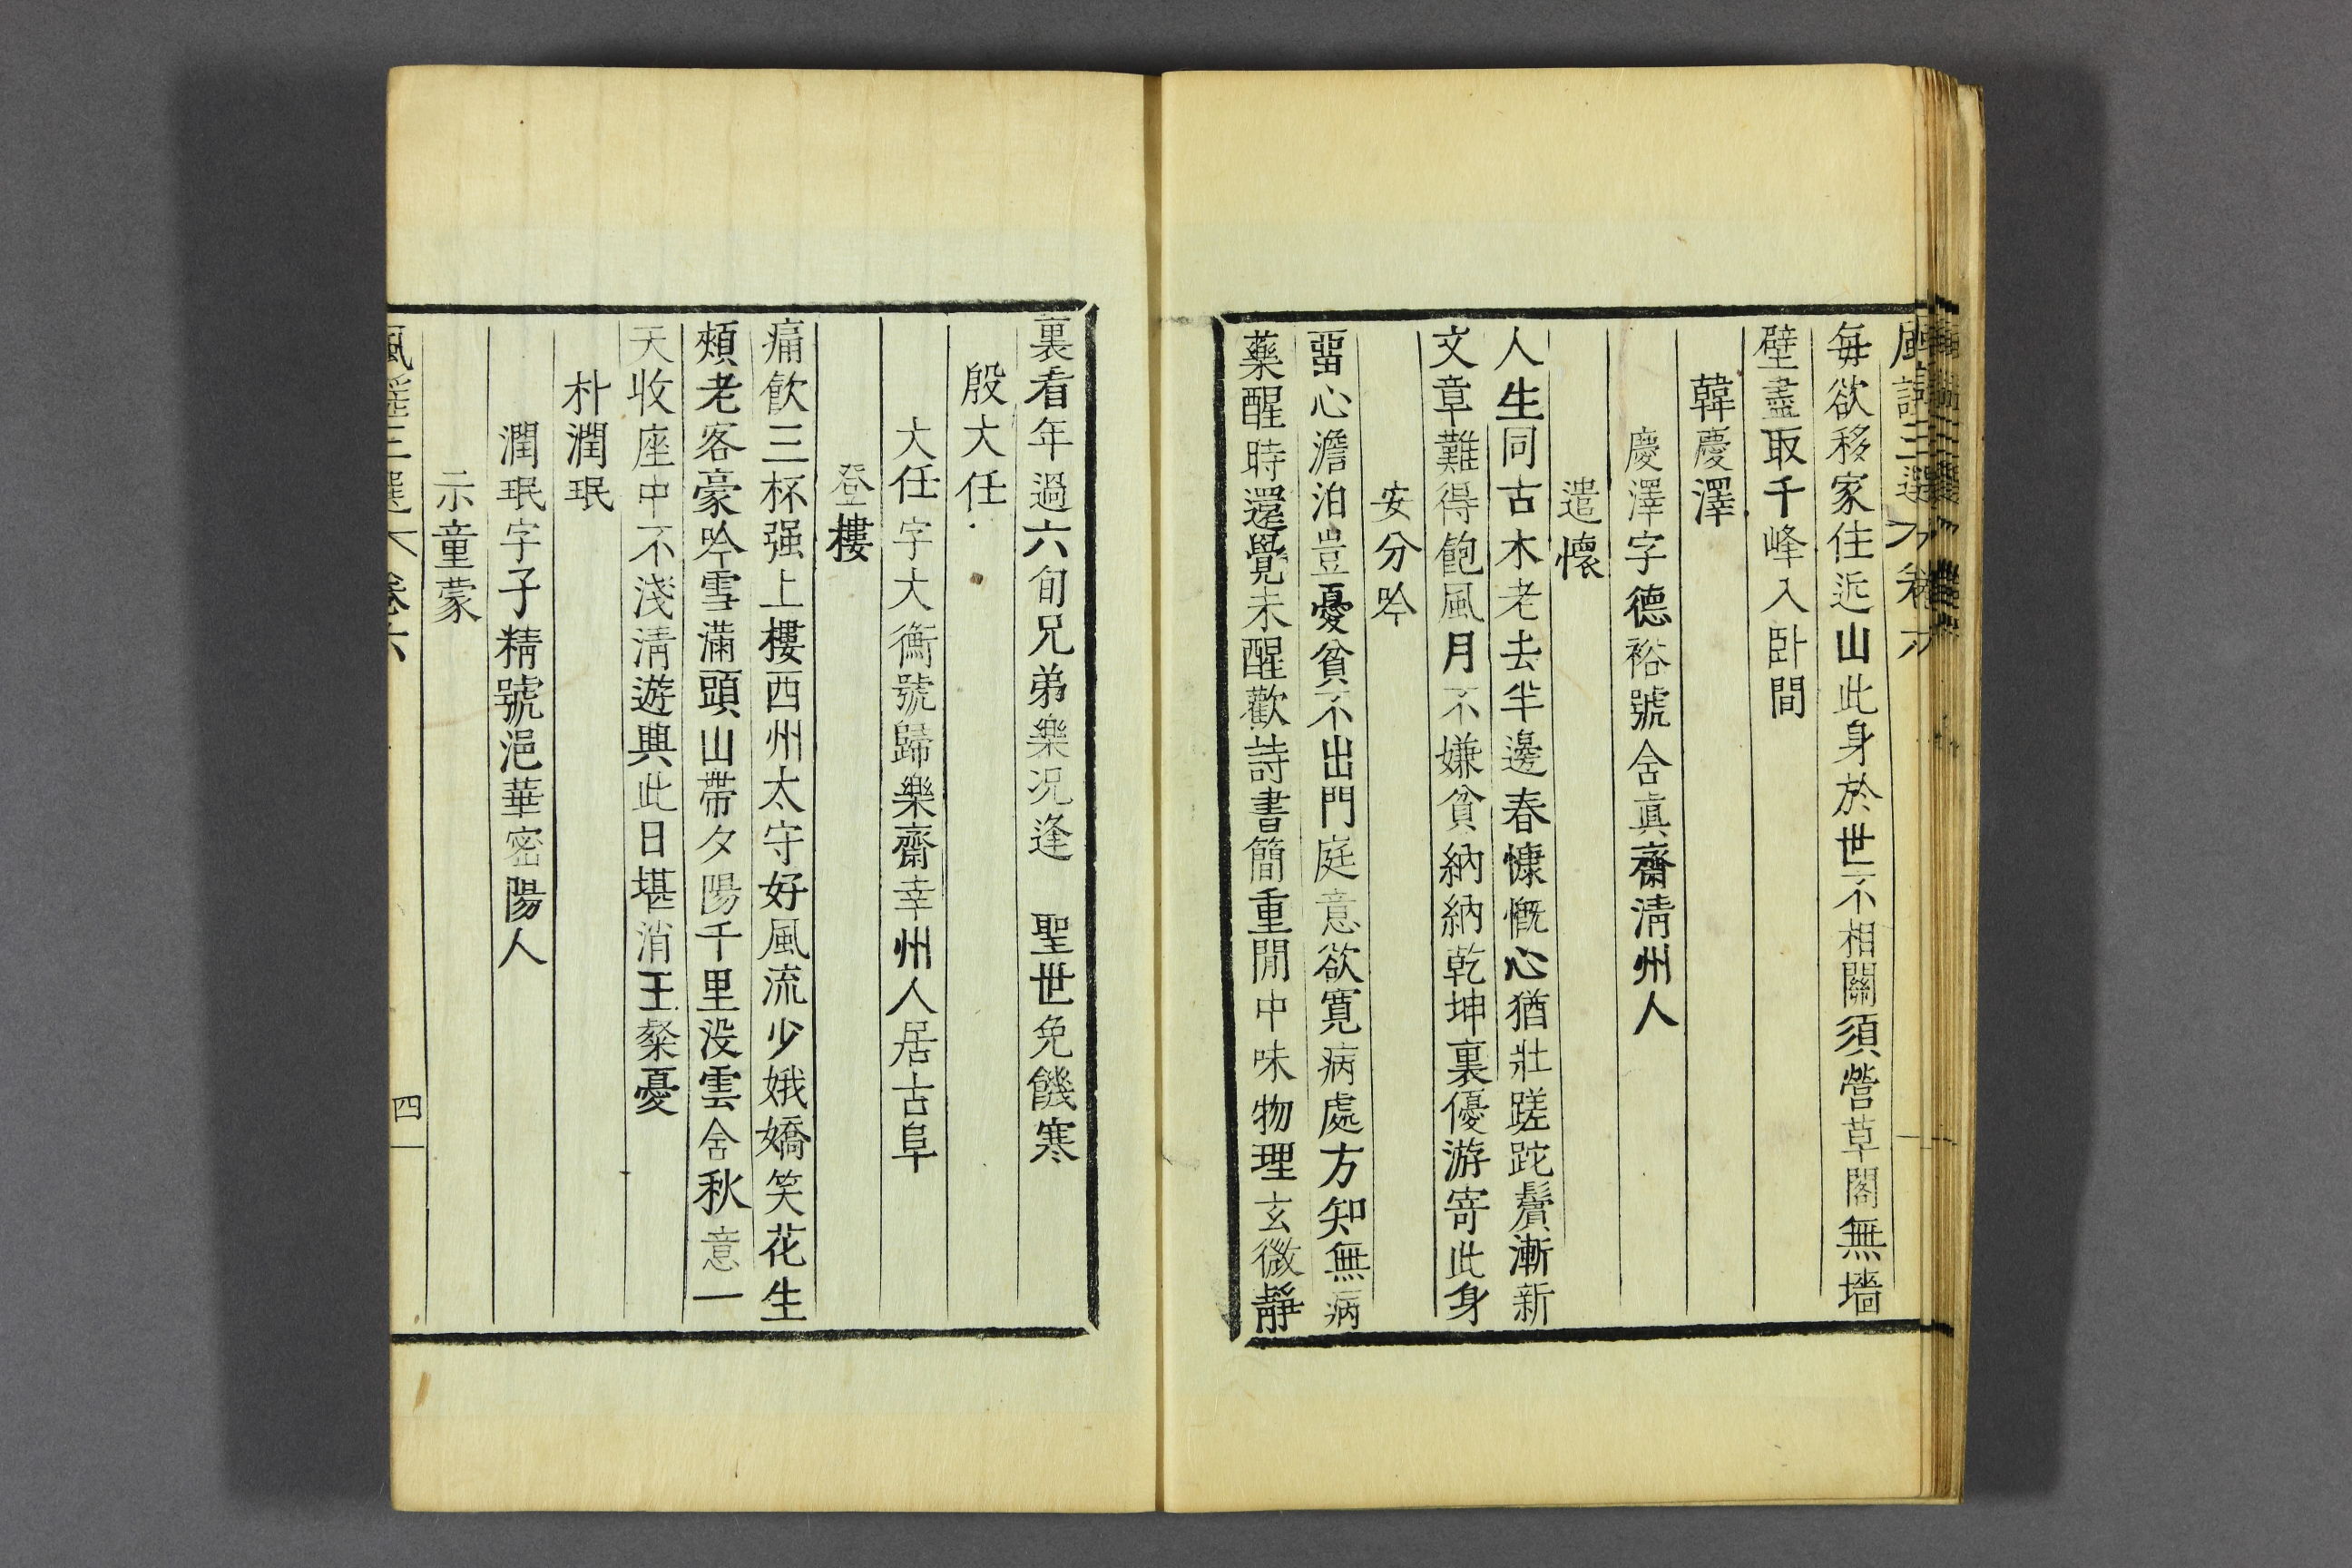 風謠三選 卷六
每欲移家住近山此身於世不相關須營草閣無墻
壁盡取千峰入卧間
韓慶澤
慶澤字德裕號含眞齋淸州人
遣懷
人生同古木老去半邊春慷慨心猶壯蹉跎鬢漸新
文章難得飽風月不嫌貧納納乾坤裏優游寄此身
安分吟
畱心澹泊豈憂貧不出門庭意欲寬病處方知無病
藥醒時還覺未醒歡詩書簡重閒中味物理玄微靜
裏看年過六旬兄弟樂况逢 聖世免饑寒
殷大任
大任字大衡號歸樂齋幸州人居古阜
登樓
痛飮三杯强上樓西州太守好風流少娥嬌笑花生
頰老客豪吟雪滿頭山帶夕陽千里没雲含秋意一
天收座中不淺淸遊興此日堪消王粲憂
朴潤珉
潤珉字子精號浥華密陽人
示童蒙
風謠三選 卷六
四